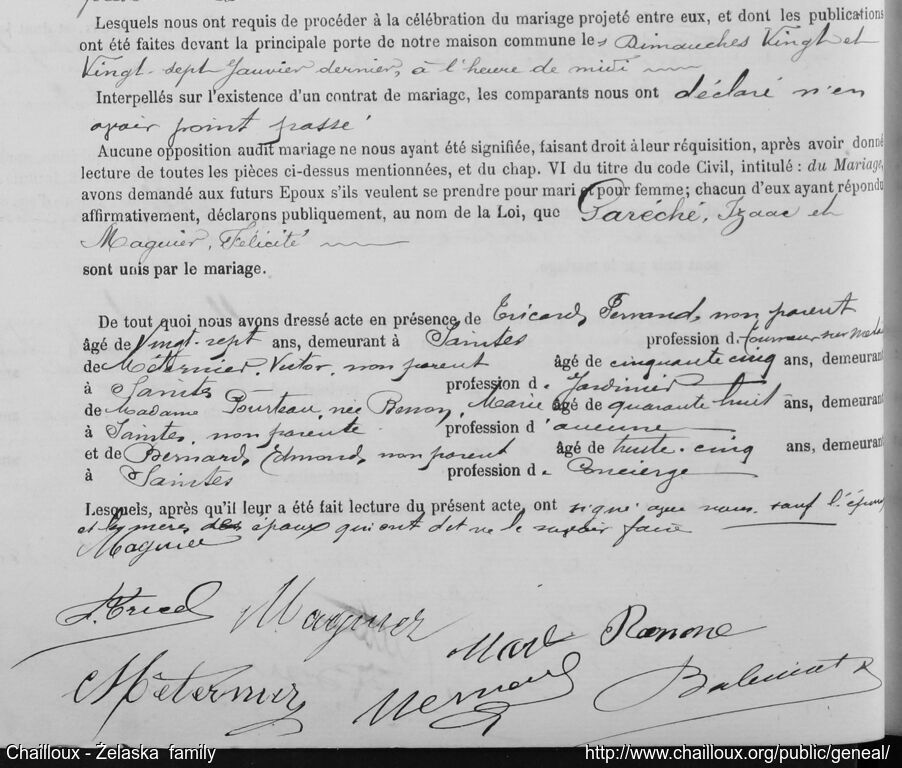 Lesquels nous ont requis de procéder à la célébration du mariage projeté entre eux, et dont les publications
ont été faites devant la principale porte de notre maison commune les Dimanches Vingt et
Vingt-sept Janvier dernier, à l'heure de midi
Interpellés sur l'existence d'un contrat de mariage, les comparants nous ont déclaré n'en
avoir point passé
Aucune opposition audit mariage ne nous ayant été signifiée, faisant droit à leur réquisition, après avoir donné
lecture de toutes les pièces ci-dessus mentionnées, et du chap. VI du titre du code Civil, intitulé : du Mariage,
avons demandé aux futurs Epoux s'ils veulent se prendre pour mari et pour femme; chacun d'eux ayant répondu
affirmativement, déclarons publiquement, au nom de la Loi, que Garéché, Izaac et
Magnier, Félicité
sont unis par le mariage.
De tout quoi nous avons dressé acte en présence de Fernand, non parent
âgé de Vingt-sept ans, demeurant à Saintes profession d. Tourneur sur
de Méternier, Victor, non parent âgé de cinquante cinq ans, demeurant
à Saintes profession d. Jardinier
de Madame née Marie âgé de quarante huit ans, demeurant
à Saintes, non parente profession d'aucune
et de Bernard, Edmond, non parent âgé de trente-cinq ans, demeurant
à Saintes profession d. Concierge
Lesquels, après qu'il leur a été fait lecture du présent acte, ont signé avec nous sauf l'époux
et les mères des époux qui ont dit ne le savoir faire
Magnier
Magnier
Méternier
Chailloux - Żelaska family
http://www.chailloux.org/public/geneal/